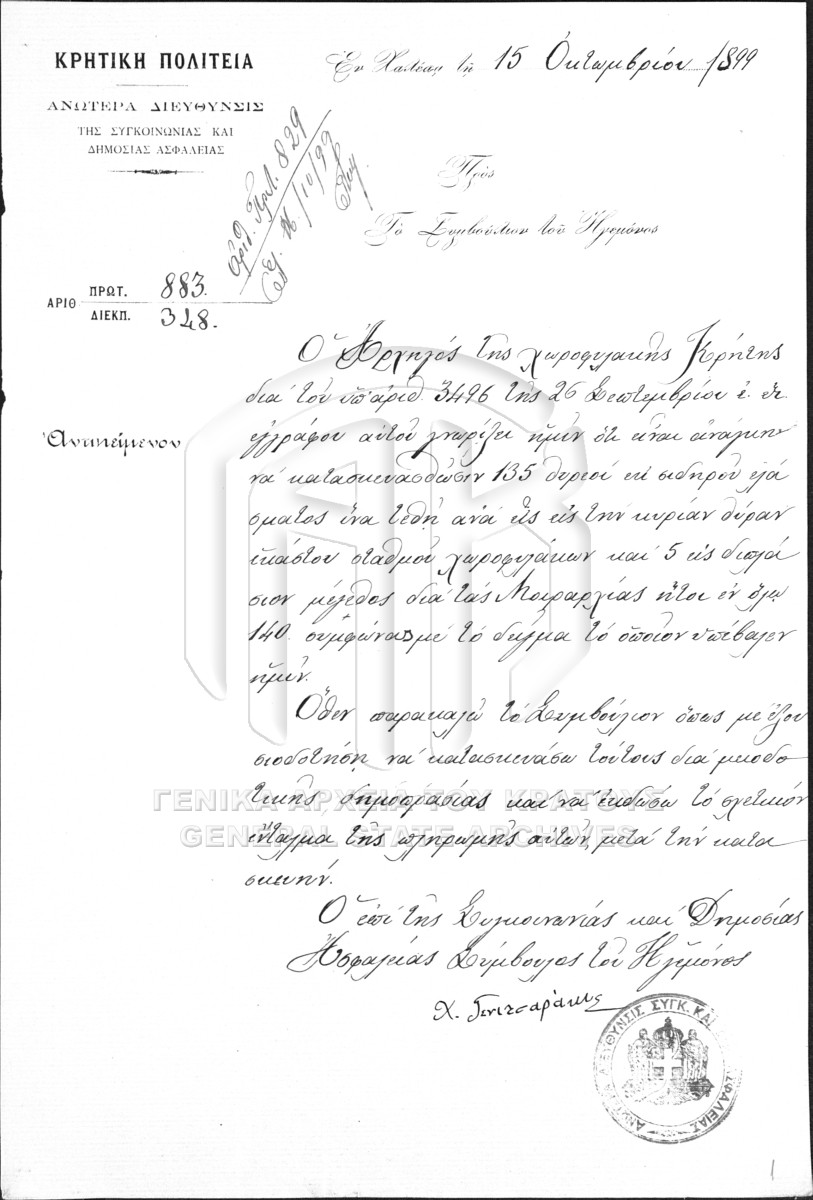 ΚΡΗΤΙΚΗ ΠΟΛΙΤΕΙΑ
ΑΝΩΤΕΡΑ ΔΙΕΥΘΥΝΣΙΣ
ΤΗΣ ΣΥΓΚΟΙΝΩΝΙΑΣ ΚΑΙ
ΔΗΜΟΣΙΑΣ ΑΣΦΑΛΕΙΑΣ
Ἐν Χανίοις τῇ 15 Ὀκτωμβρίου 1899
Ἀριθ. Πρωτ. 829
16/10/99
Πρὸς
Τὸ Συμβούλιον τοῦ Ἡγεμόνος
ΑΡΙΘ ΠΡΩΤ. 883.
ΔΙΕΚΠ. 348.
Ἀντικείμενον
Ὁ Ἀρχηγός τῆς χωροφυλακῆς Κρήτης
διά τοῦ ὑπ' ἀριθ. 3496 τῆς 26 Σεπτεμβρίου ἐ. ἔ.
ἐγγράφου αὑτοῦ γνωρίζει ἡμῖν ὅτι εἶναι ἀνάγκη
νά κατασκευασθῶσιν 135 θυρεοί ἐκ σιδηροῦ ἐλά
σματος ἵνα τεθῇ ἀνά εἷς εἰς τήν κυρίαν θύραν
ἑκάστου σταθμοῦ χωροφυλάκων καί 5 εἰς διπλά
σιον μέγεθος διά τάς Μοιραρχίας ἤτοι ἐν ὅλῳ
140 συμφώνως μέ τό δεῖγμα τό ὁποῖον ὑπέβαλεν
ἡμῖν.
Ὅθεν παρακαλῶ τό Συμβούλιον ὅπως μέ ἐξου
σιοδοτήσῃ νά κατασκευάσω τούτους διά μειοδο
τικῆς δημοπρασίας καί νά ἐκδώσω τό σχετικόν
ἔνταλμα τῆς πληρωμῆς αὐτῶν μετά τήν κατα
σκευήν.
Ὁ ἐπί τῆς Συγκοινωνίας καί Δημοσίας
Ἀσφαλείας Σύμβουλος τοῦ Ἡγεμόνος
Χ. Γενιτσαράκις
ΑΝΩΤΕΡΑ ΔΙΕΥΘΥΝΣΙΣ ΣΥΓΚ. ΚΑΙ ΑΣΦΑΛΕΙΑΣ
ΓΕΝΙΚΑ ΑΡΧΕΙΑ ΤΟΥ ΚΡΑΤΟΥΣ
GENERAL STATE ARCHIVES
1